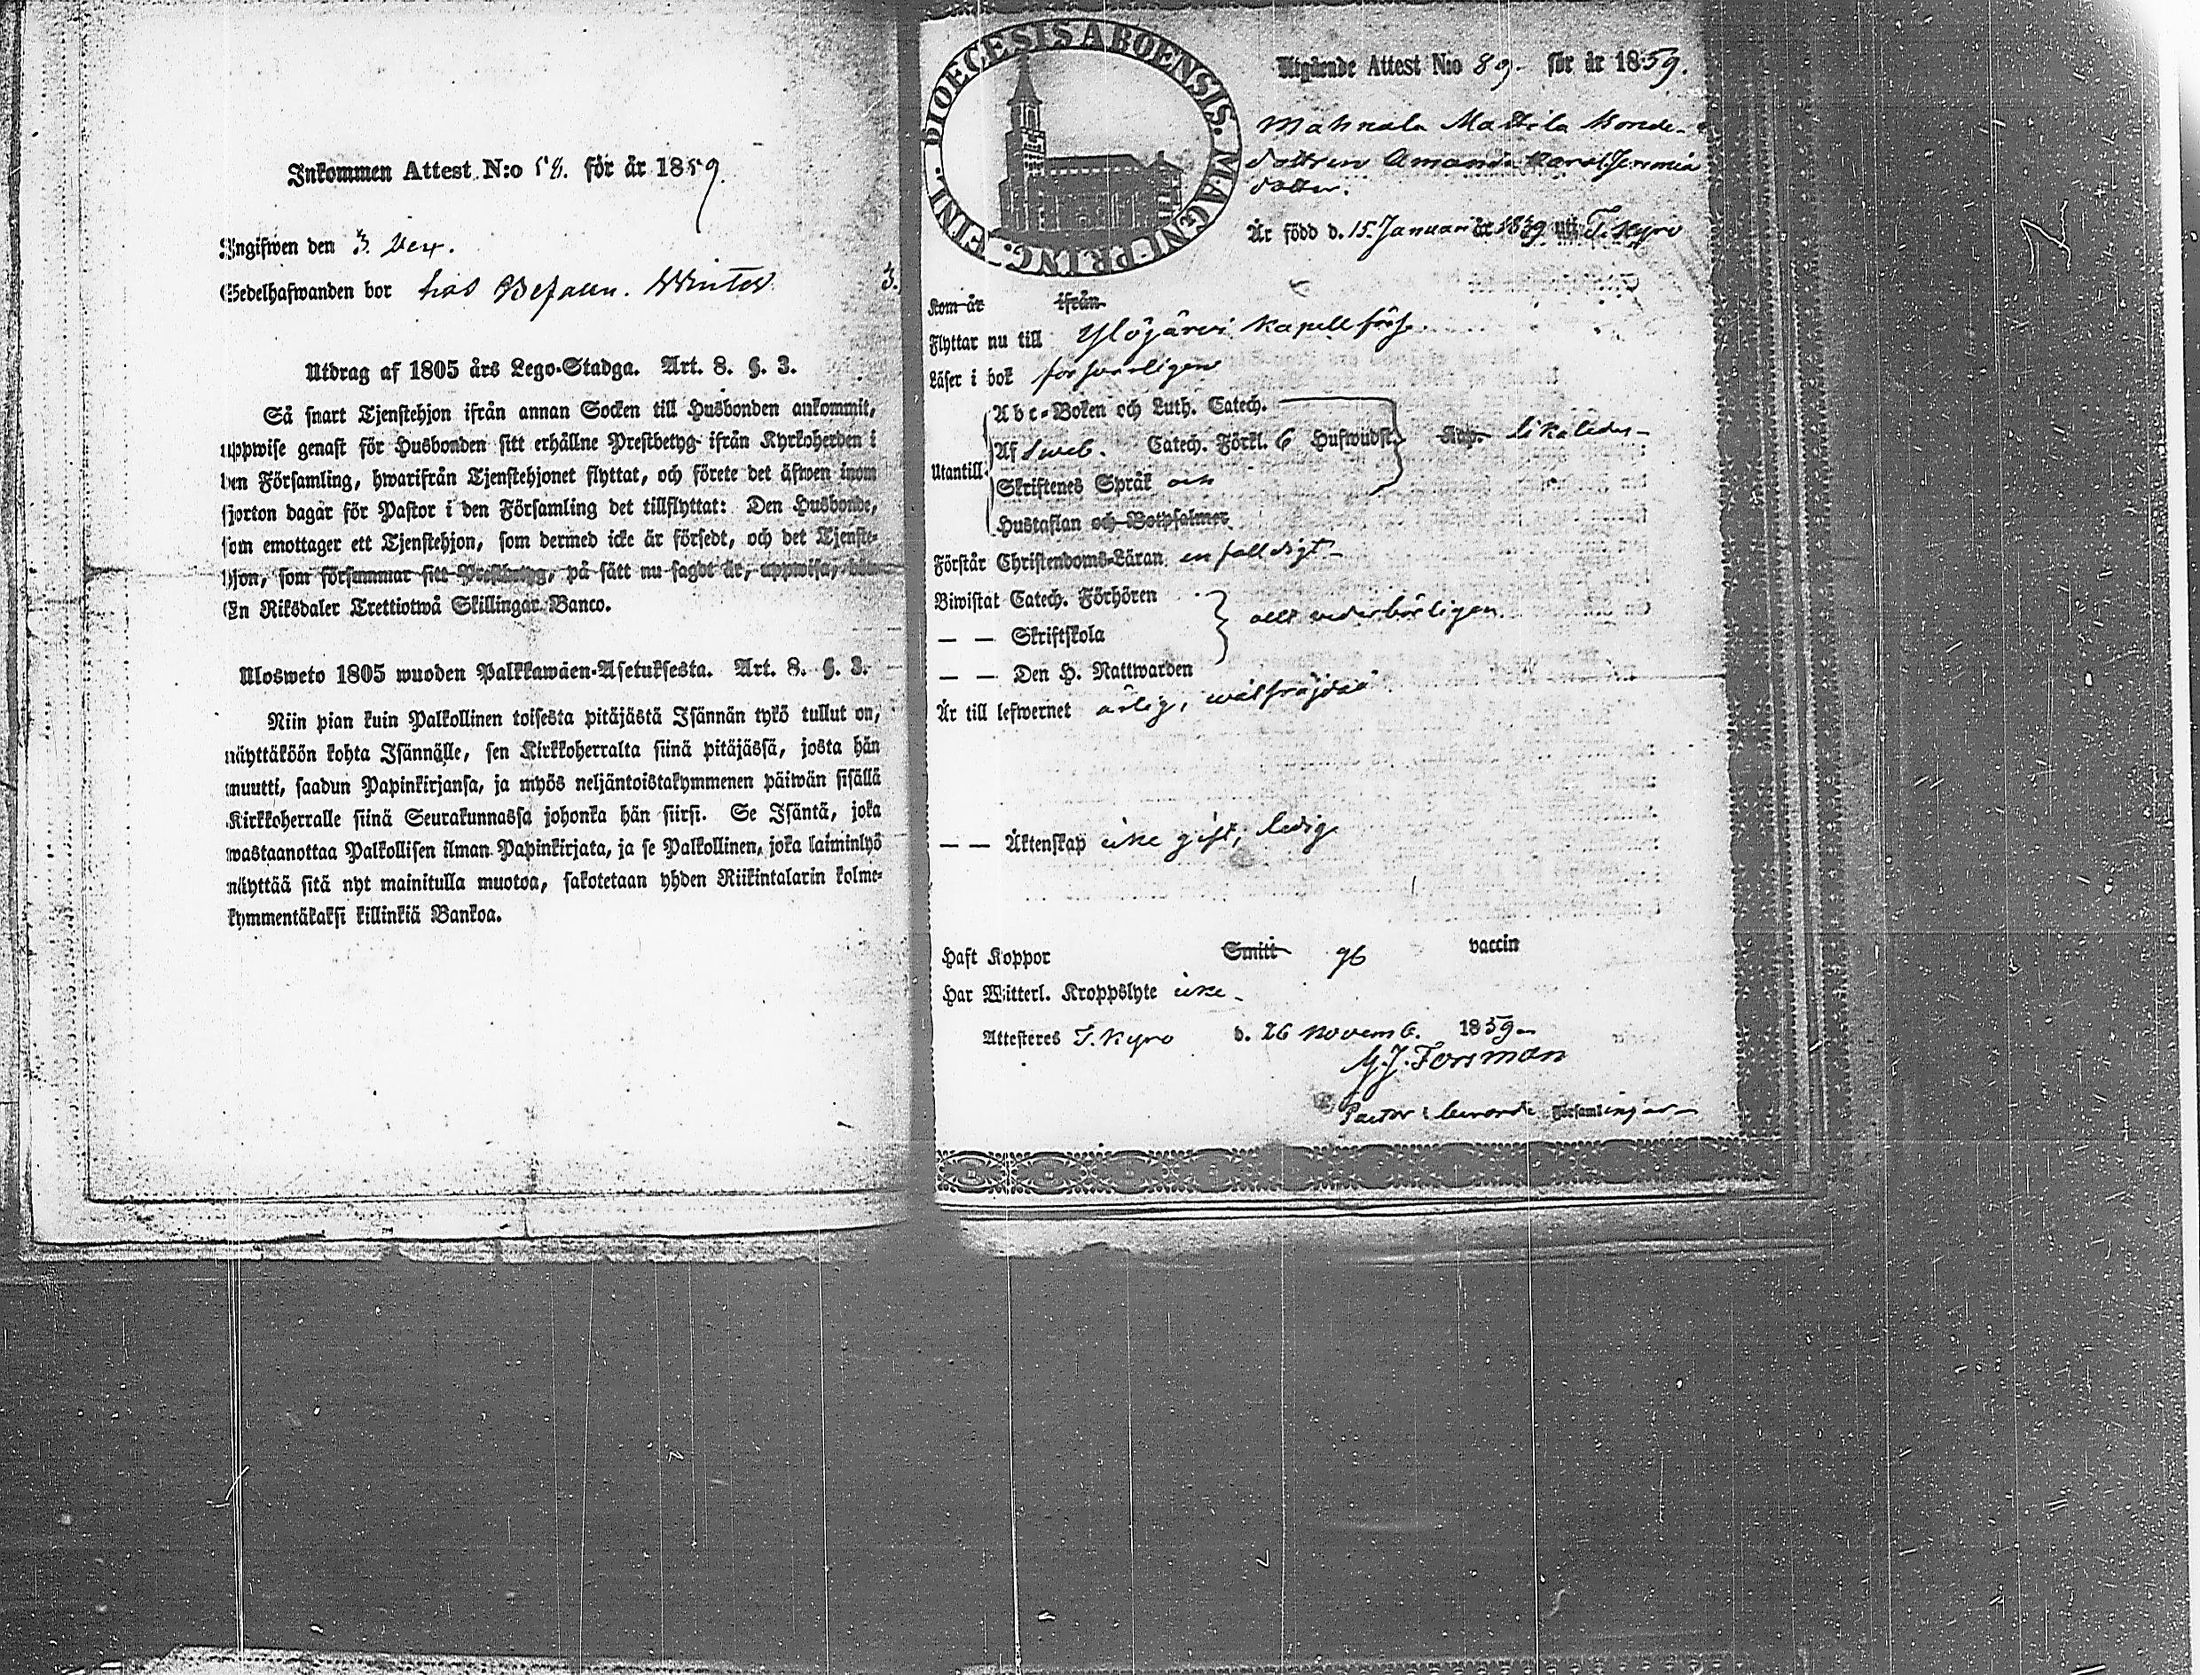 Inkommen Attest N:o 58. för år 1859.
Angifwen den 3 Dec.
Sedelhafwanden bor hos Befalln. Winter
3.
Utdrag af 1805 års Lego-Stadga. Art. 8. §. 3.
Så snart Tjenstehjon ifrån annan Socken till Husbonden ankommit,
uppwise genast för Husbonden sitt erhållne Prestbetyg ifrån Kyrkoherden i
den Församling, hwarifrån Tjenstehjonet flyttat, och förete det äfwen inom
fjorton dagar för Pastor i den Församling det tillflyttat: Den Husbonde,
som emottager ett Tjenstehjon, som dermed icke är försedt, och det Tjenste-
hjon, som försummar sitt Prestbetyg, på sätt nu sagdt är, uppwisa, böte
En Riksdaler Trettiotwå Skillingar Banco.
Ulosweto 1805 wuoden Palkkawäen-Asetuksesta. Art. 8. §. 3.
Niin pian kuin Palkollinen toisesta pitäjästä Isännän tykö tullut on,
näyttäköön kohta Isännälle, sen Kirkkoherralta siinä pitäjässä, josta hän
muutti, saadun Papinkirjansa, ja myös neljäntoistakymmenen päiwän sisällä
Kirkkoherralle siinä Seurakunnassa johonka hän siirsi. Se Isäntä, joka
wastaanottaa Palkollisen ilman Papinkirjata, ja se Palkollinen, joka laiminlyö
näyttää sitä nyt mainitulla muotoa, sakotetaan yhden Riikintalarin kolme-
kymmentäkaksi killinkiä Bankoa.
DIOECESIS ABOENSIS. MAGNI PRINC. FINL.
Utgående Attest N:o 89. för år 1859.
Mahnala Mattila Bonde-
dottren Amanda Karol. Jeremia
dotter.
Är född d. 15. Januari år 1839 uti T. Kyro
Kom år ifrån
Flyttar nu till Ylöjärvi Kapell förs.
Läser i bok försvarligen
Utantill
Abc-Boken och Luth. Catech.
Af Sweb. Catech. Förkl. 6 Hufwudst. Kap. likaledes-
Skriftenes Språk och
Hustaflan och Botpsalmer
Förstår Christendoms-Läran enfalldigt-
Biwistat Catech. Förhören
— — Skriftskola allt vederbörligen.
— — Den H. Nattwarden
Är till lefwernet ärlig, wälfräjdad
— — Äktenskap icke gift, ledig
Haft Koppor Smitt gb vaccin
Har Witterl. Kroppslyte icke-
Attesteres T. Kyro d. 26 Novemb. 1859-
G. J. Forsman
Pastor i benämde Församlingar-